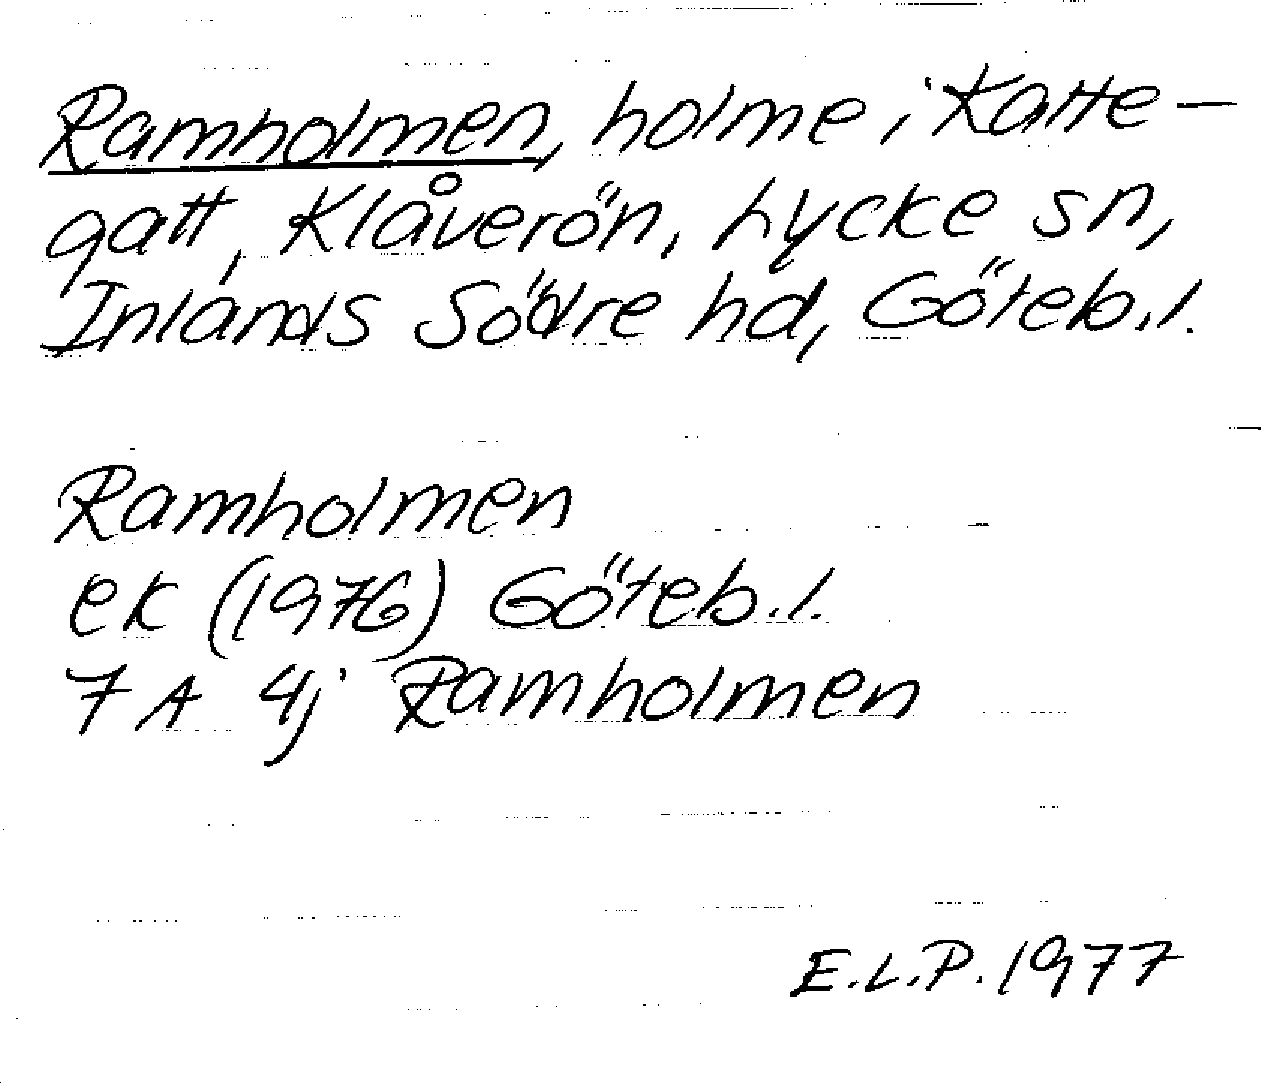 Ramholmen, holme i Katte-
gatt, Klåverön, Lycke sn,
Inlands Södre hd, Göteb.l.
Ramholmen
ek (1976) Göteb.l.
7 A 4j Ramholmen
E.L.P. 1977